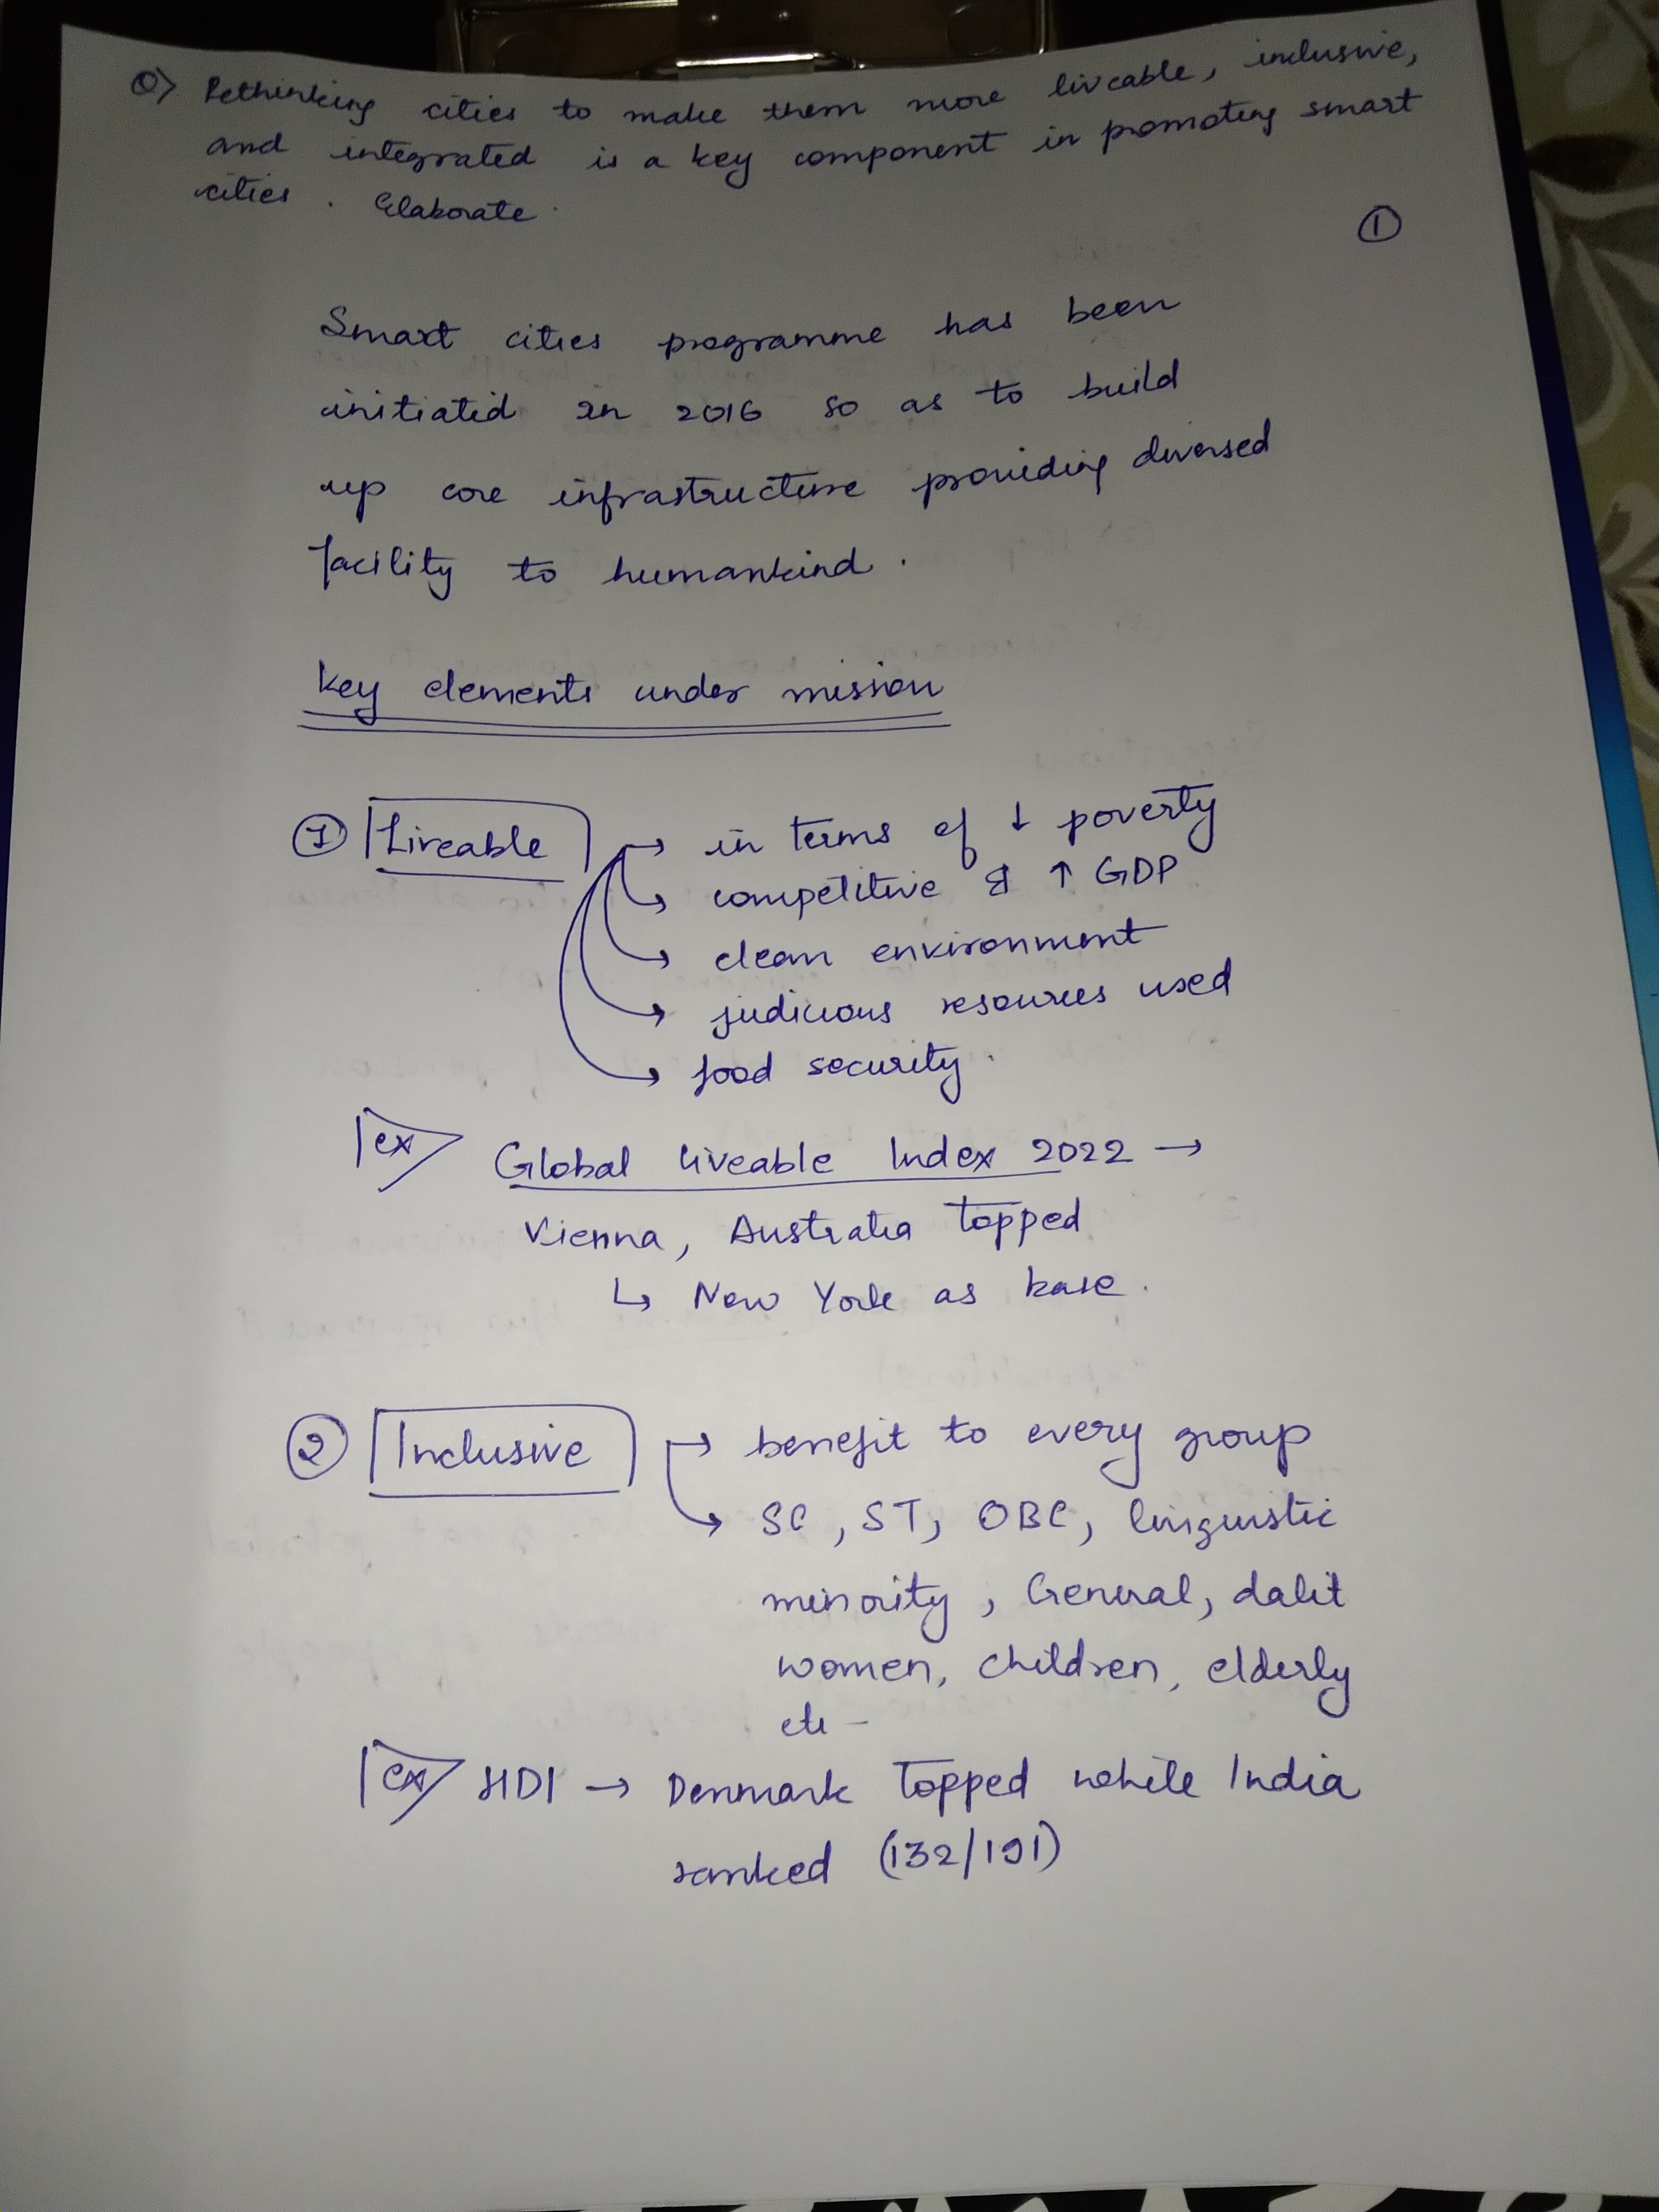 Q> Rethinking cities to make them more liveable, inclusive,
and integrated is a key component in promoting smart
cities. Elaborate.
1
Smart cities programme has been
initiated in 2016 so as to build
up core infrastructure providing diversed
facility to humankind.
key elements under mission
1 Liveable → in terms of ↓ poverty
→ competitive & ↑ GDP
→ clean environment
→ judicious resources used
→ food security.
ex Global liveable Index 2022 →
Vienna, Australia topped
↳ New York as base.
2 Inclusive → benefit to every group
→ SC, ST, OBC, linguistic
minority, General, dalit
women, children, elderly
etc -
ex HDI → Denmark topped while India
ranked (132/191)